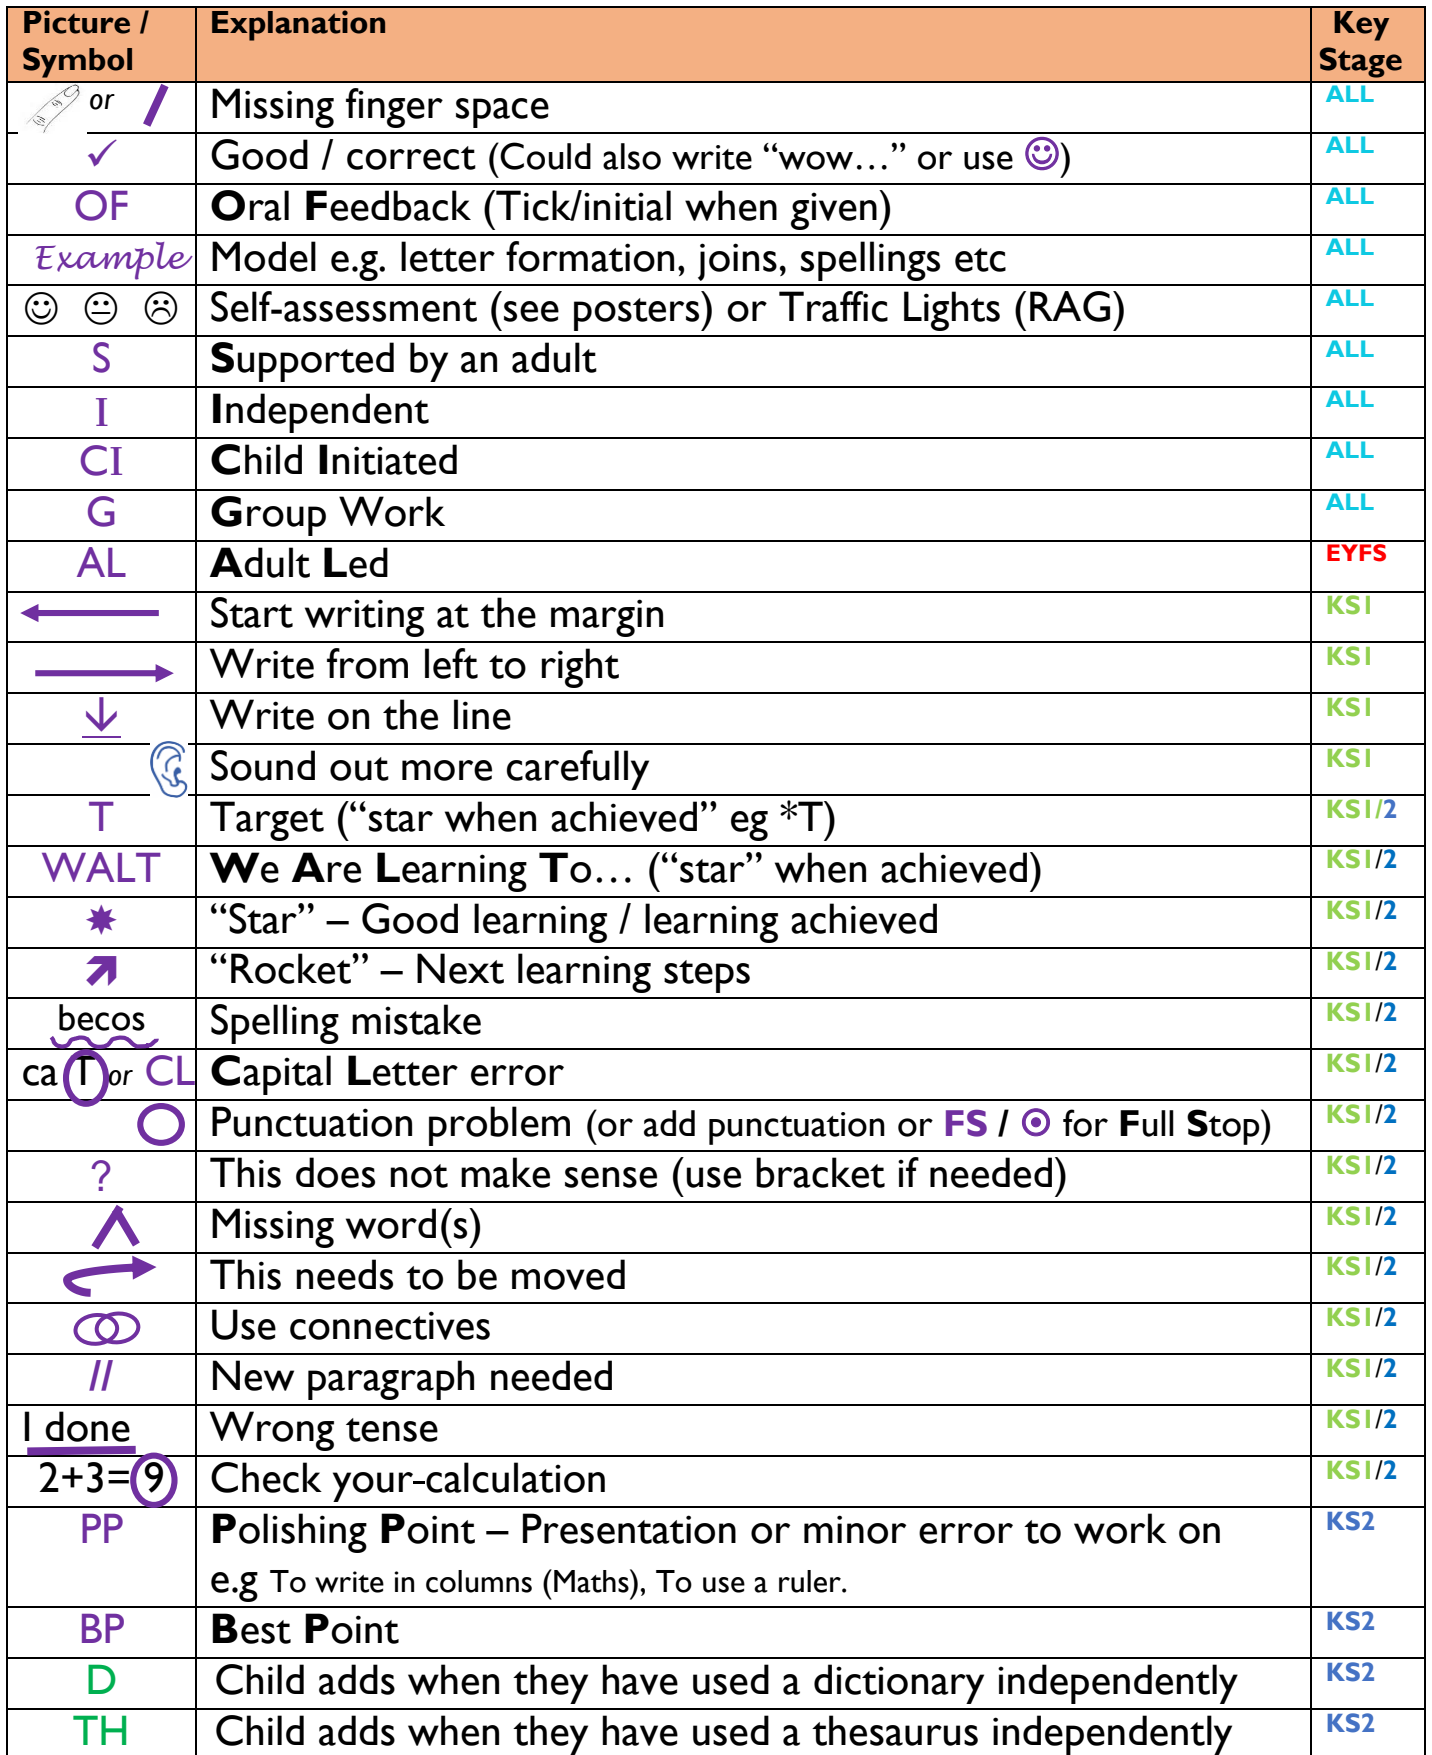 Picture / Symbol Explanation Key Stage
or Missing finger space ALL
✓ Good / correct (Could also write “wow…” or use ☺) ALL
OF Oral Feedback (Tick/initial when given) ALL
Example Model e.g. letter formation, joins, spellings etc ALL
Self-assessment (see posters) or Traffic Lights (RAG) ALL
S Supported by an adult ALL
I Independent ALL
CI Child Initiated ALL
G Group Work ALL
AL Adult Led EYFS
Start writing at the margin KS1
Write from left to right KS1
Write on the line KS1
Sound out more carefully KS1
T Target (“star when achieved” eg *T) KS1/2
WALT We Are Learning To… (“star” when achieved) KS1/2
“Star” – Good learning / learning achieved KS1/2
“Rocket” – Next learning steps KS1/2
becos Spelling mistake KS1/2
caT or CL Capital Letter error KS1/2
Punctuation problem (or add punctuation or FS / ⊙ for Full Stop) KS1/2
? This does not make sense (use bracket if needed) KS1/2
Missing word(s) KS1/2
This needs to be moved KS1/2
Use connectives KS1/2
// New paragraph needed KS1/2
I done Wrong tense KS1/2
2+3=9 Check your-calculation KS1/2
PP Polishing Point – Presentation or minor error to work on KS2
e.g To write in columns (Maths), To use a ruler.
BP Best Point KS2
D Child adds when they have used a dictionary independently KS2
TH Child adds when they have used a thesaurus independently KS2